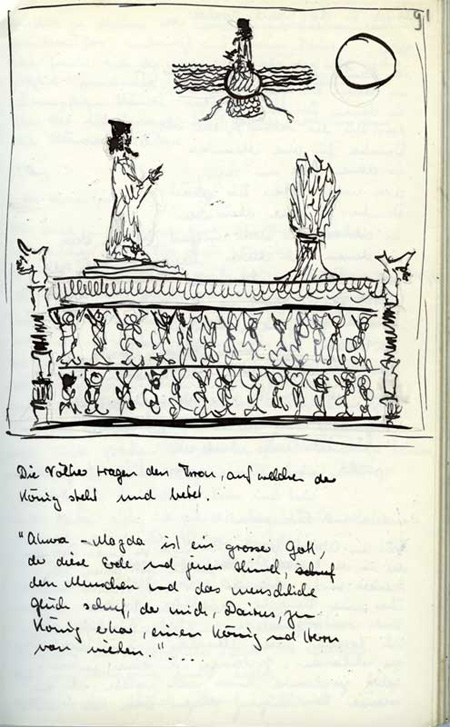 91
Die Völker tragen den Thron, auf welchem der
König steht und betet.
"Ahura-Mazda ist ein grosser Gott,
der diese Erde und jenen Himmel, schuf
den Menschen und das menschliche
Glück schuf, der mich, Darius, zum
König erkor, einen König und Herrn
von vielen." ....